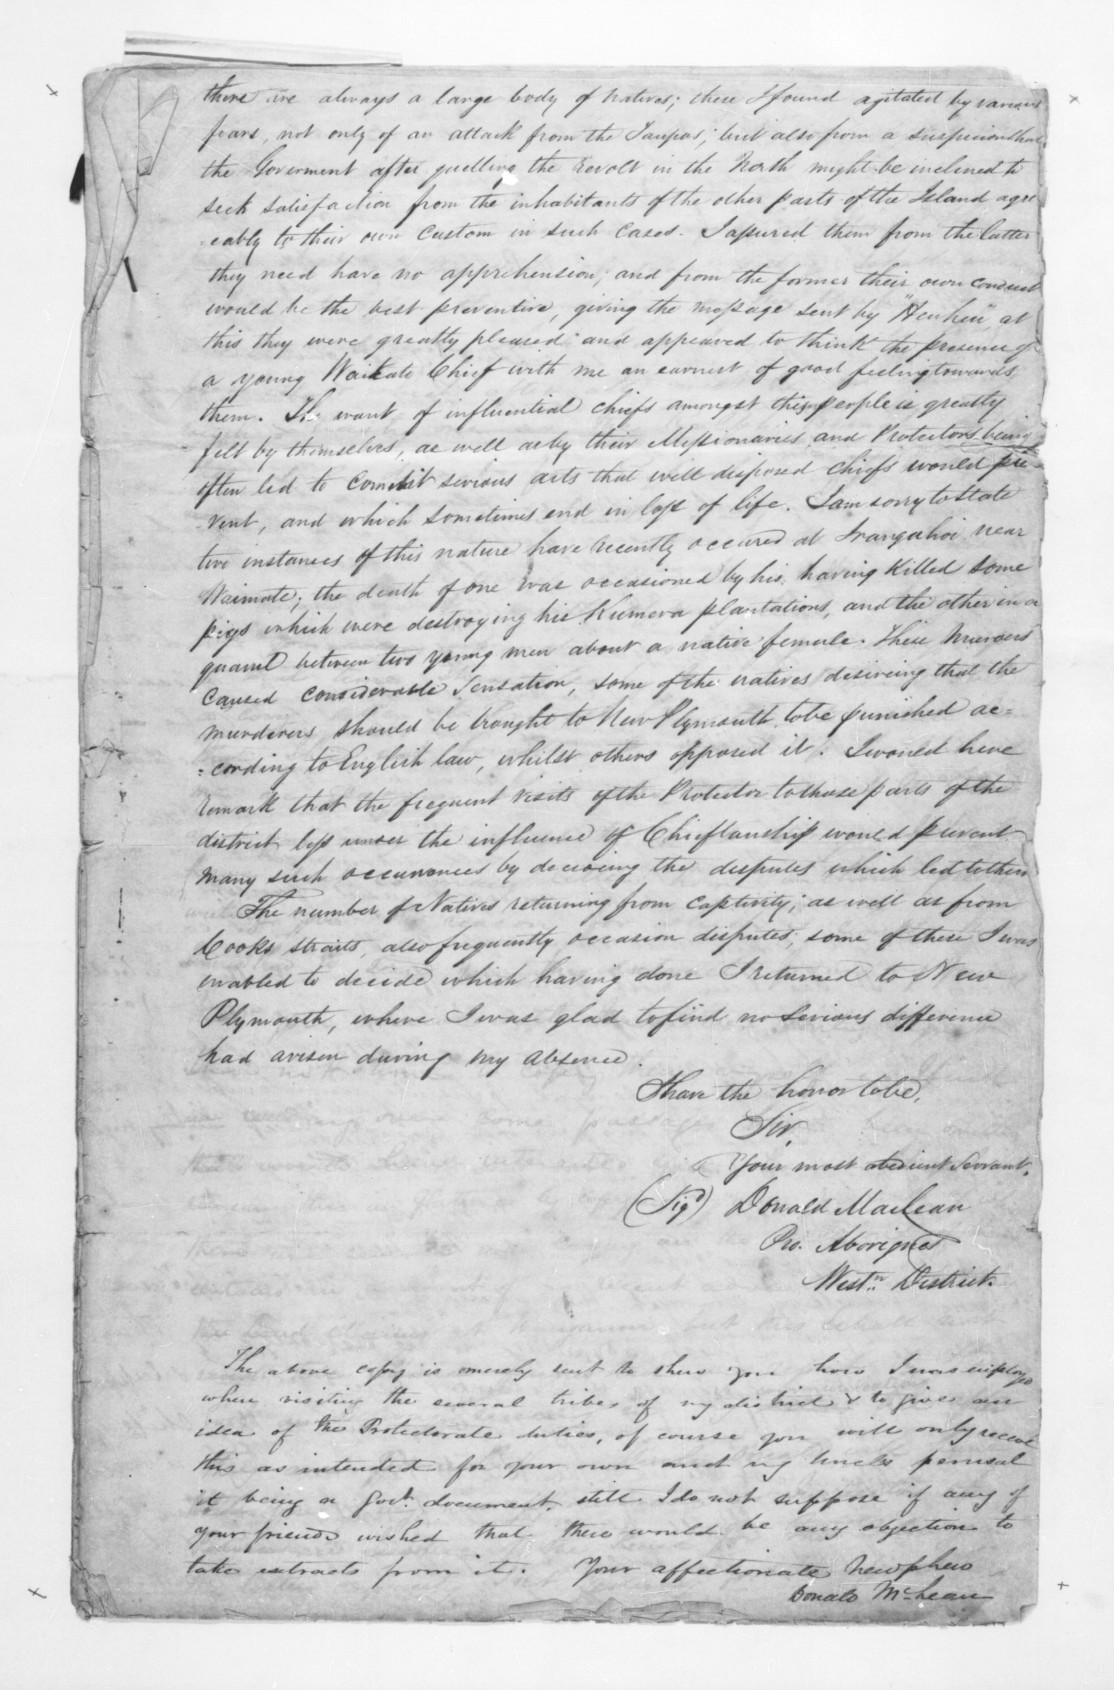 there are always a large body of natives; these I found agitated by various
fears, not only of an attack from the Taupos; but also from a suspicion that
the Goverment after quelling the revolt in the North might be inclined to
seek satisfaction from the inhabitants of the other parts of the Island agre
-eably to their own custom in such cases. I assured them from the latter
they need have no apprehension; and from the former their own conduct
would be the best preventive, giving the message sent by "Heuheu" at
this they were greatly pleased and appeared to think the presence of
a young Waikato Chief with me an earnest of good feeling towards
them. The want of influential chiefs amongst this people is greatly
felt by themselves, as well as by their Missionaries and Protectors being
often led to commit serious acts that well disposed chiefs would pre-
-vent, and which sometimes end in loss of life. I am sorry to state
two instances of this nature have recently occured at Irangahoi near
Waimate; the death of one was occasioned by his having killed some
pigs which were destroying his Kumera plantations, and the other in a
quarrel between two young men about a native female. These Murders
caused considerable sensation, some of the natives desireing that the
murderers should be brought to New Plymouth to be punished ac=
=cording to English law, whilst others opposed it. I would here
remark that the frequent visits of the Protector to those parts of the
district less under the influence of Chieftanship would prevent
many such occurrences by deciding the disputes which led to them
The number of Natives returning from captivity; as well as from
Cooks straits, also frequently occasion disputes, some of these I was
enabled to decide which having done I returned to New
Plymouth, where I was glad to find no serious difference
had arisen during my absence.
I have the honor to be,
Sir,
Your most obedient Servant.
(Sigd) Donald MacLean
Pro. Aborignes
Westn. District.
The above copy is merely sent to shew you how I was employed
when visiting the several tribes of my district & to give an
idea of the Protectorate duties, of course you will only receive
this as intended for your own and my Uncles perusal
it being a Govt. document. still I do not suppose if any of
your friends wished that there would be any objection to
take extracts from it. Your affectionate Newphew
Donald McLean